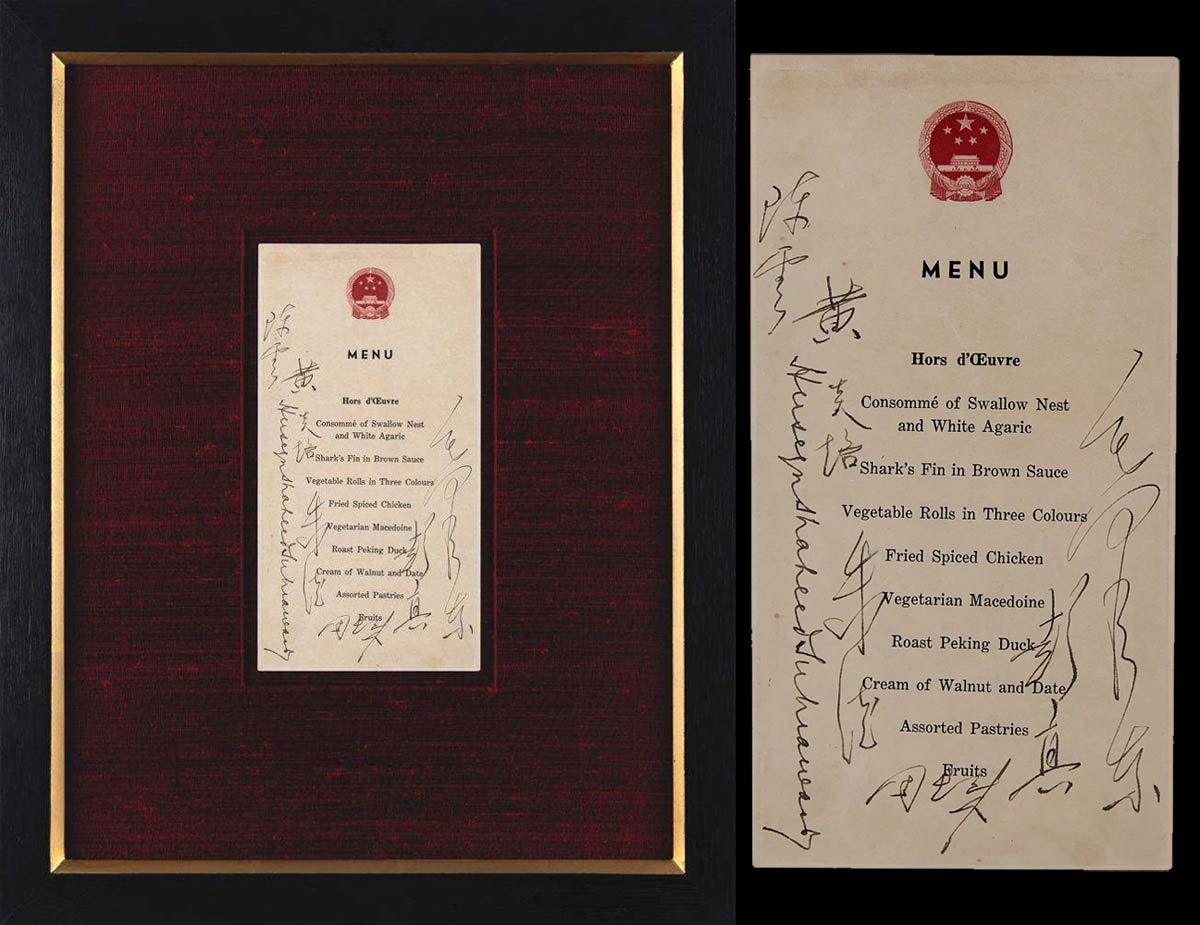 MENU
Hors d'Œuvre
Consommé of Swallow Nest
and White Agaric
Shark's Fin in Brown Sauce
Vegetable Rolls in Three Colours
Fried Spiced Chicken
Vegetarian Macedoine
Roast Peking Duck
Cream of Walnut and Date
Assorted Pastries
Fruits
黄炎培
Huseyn Shaheed Suhrawardy
朱德
周恩来
彭真
毛泽东
MENU
Hors d'Œuvre
Consommé of Swallow Nest
and White Agaric
Shark's Fin in Brown Sauce
Vegetable Rolls in Three Colours
Fried Spiced Chicken
Vegetarian Macedoine
Roast Peking Duck
Cream of Walnut and Date
Assorted Pastries
Fruits
黄炎培
Huseyn Shaheed Suhrawardy
朱德
周恩来
彭真
毛泽东